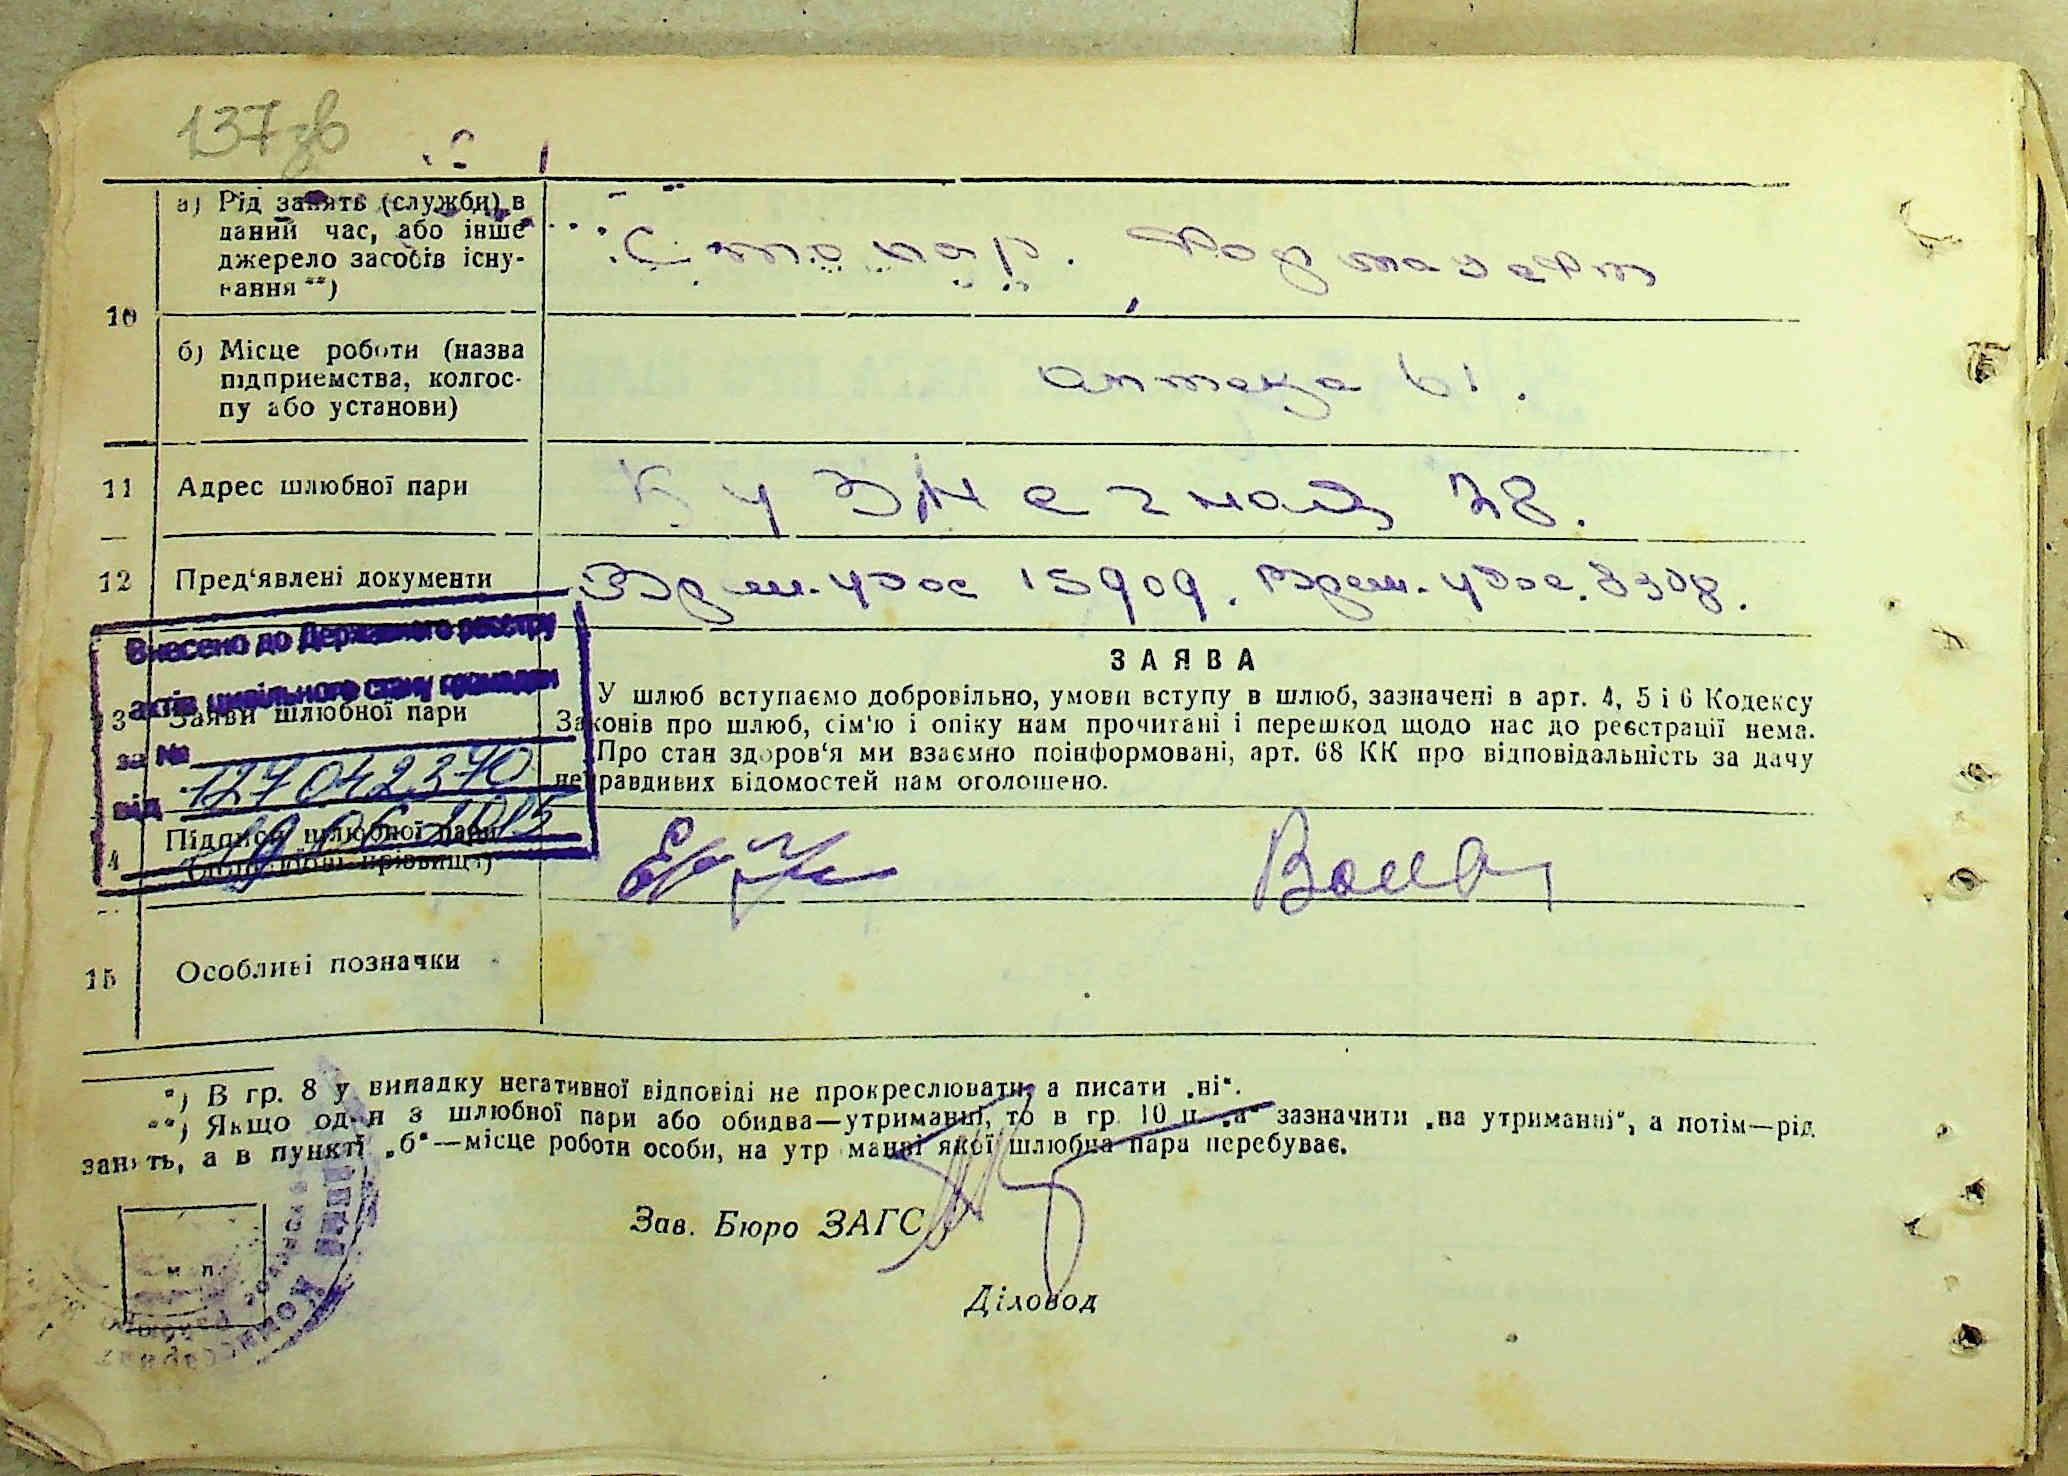 137зв
а) Рід занять (служби) в
даний час, або інше
джерело засобів існу-
вання **)
Столяр.
10
б) Місце роботи (назва
підприємства, колгос-
пу або установи)
аптека 61.
11 Адрес шлюбної пари
Кузнечная 28.
12 Пред'явлені документи
Врем. удос 15909. Врем. удос. 3308.
Внесено до Державного реєстру
актів цивільного стану громадян
за № 127042370
від 19 06 2015
3 Заяви шлюбної пари
ЗАЯВА
У шлюб вступаємо добровільно, умови вступу в шлюб, зазначені в арт. 4, 5 і 6 Кодексу
Законів про шлюб, сім'ю і опіку нам прочитані і перешкод щодо нас до реєстрації нема.
Про стан здоров'я ми взаємно поінформовані, арт. 68 КК про відповідальність за дачу
неправдивих відомостей нам оголошено.
4 Підписи шлюбної пари
15 Особливі позначки
*) В гр. 8 у випадку негативної відповіді не прокреслювати, а писати „ні“.
**) Якщо один з шлюбної пари або обидва—утриманні, то в гр. 10 п. „а“ зазначити „на утриманні“, а потім—рід
занять, а в пункті „б“—місце роботи особи, на утриманні якої шлюбна пара перебуває.
Зав. Бюро ЗАГС
м. п.
Діловод